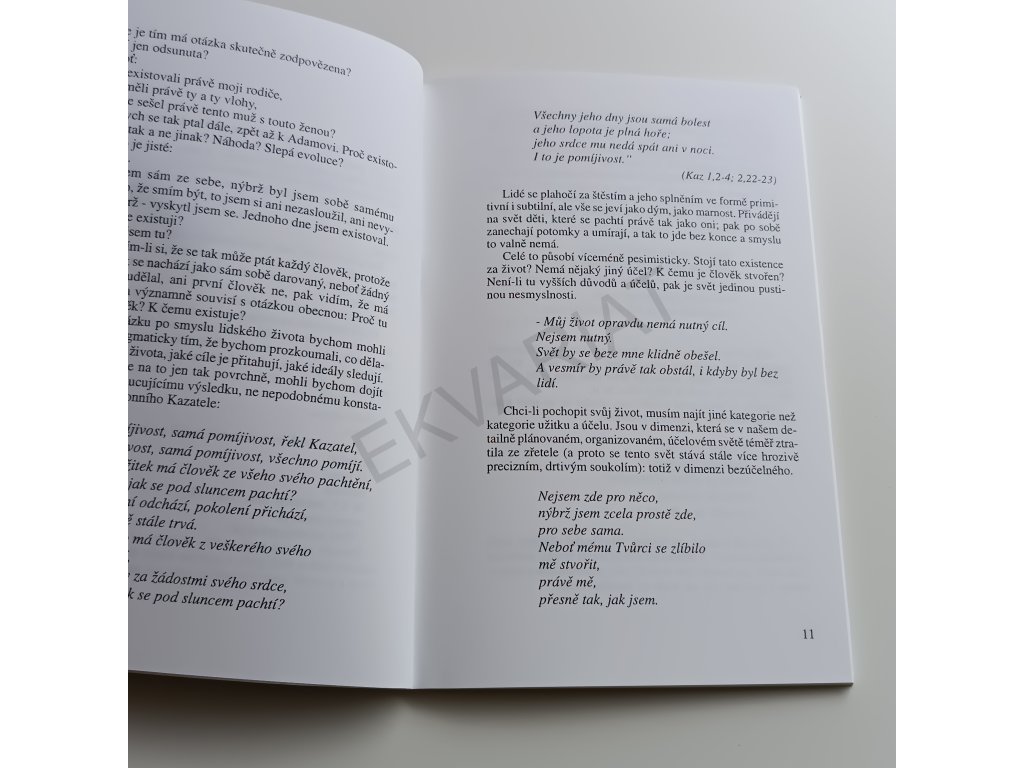 e je tím má otázka skutečně zodpovězena?
jen odsunuta?
oť:
existovali právě moji rodiče,
měli právě ty a ty vlohy,
e sešel právě tento muž s touto ženou?
ych se tak ptal dále, zpět až k Adamovi. Proč existo-
tak a ne jinak? Náhoda? Slepá evoluce?
je jisté:
em sám ze sebe, nýbrž byl jsem sobě samému
o, že smím být, to jsem si ani nezasloužil, ani nevy-
rž - vyskytl jsem se. Jednoho dne jsem existoval.
e existuji?
sem tu?
ím-li si, že se tak může ptát každý člověk, protože
k se nachází jako sám sobě darovaný, neboť žádný
udělal, ani první člověk ne, pak vidím, že má
a významně souvisí s otázkou obecnou: Proč tu
ěk? K čemu existuje?
ázku po smyslu lidského života bychom mohli
agmaticky tím, že bychom prozkoumali, co děla-
života, jaké cíle je přitahují, jaké ideály sledují.
e na to jen tak povrchně, mohli bychom dojít
ucujícímu výsledku, ne nepodobnému konsta-
onního Kazatele:
íjivost, samá pomíjivost, řekl Kazatel,
vost, samá pomíjivost, všechno pomíjí.
žitek má člověk ze všeho svého pachtění,
jak se pod sluncem pachtí?
ní odchází, pokolení přichází,
ě stále trvá.
má člověk z veškerého svého
y za žádostmi svého srdce,
k se pod sluncem pachtí?
Všechny jeho dny jsou samá bolest
a jeho lopota je plná hoře;
jeho srdce mu nedá spát ani v noci.
I to je pomíjivost."
(Kaz 1,2-4; 2,22-23)
Lidé se plahočí za štěstím a jeho splněním ve formě primi-
tivní i subtilní, ale vše se jeví jako dým, jako marnost. Přivádějí
na svět děti, které se pachtí právě tak jako oni; pak po sobě
zanechají potomky a umírají, a tak to jde bez konce a smyslu
to valně nemá.
Celé to působí víceméně pesimisticky. Stojí tato existence
za život? Nemá nějaký jiný účel? K čemu je člověk stvořen?
Není-li tu vyšších důvodů a účelů, pak je svět jedinou pusti-
nou nesmyslnosti.
- Můj život opravdu nemá nutný cíl.
Nejsem nutný.
Svět by se beze mne klidně obešel.
A vesmír by právě tak obstál, i kdyby byl bez
lidí.
Chci-li pochopit svůj život, musím najít jiné kategorie než
kategorie užitku a účelu. Jsou v dimenzi, která se v našem de-
tailně plánovaném, organizovaném, účelovém světě téměř ztra-
tila ze zřetele (a proto se tento svět stává stále více hrozivě
precizním, drtivým soukolím): totiž v dimenzi bezúčelného.
Nejsem zde pro něco,
nýbrž jsem zcela prostě zde,
pro sebe sama.
Neboť mému Tvůrci se zlíbilo
mě stvořit,
právě mě,
přesně tak, jak jsem.
11
EKVARIAT